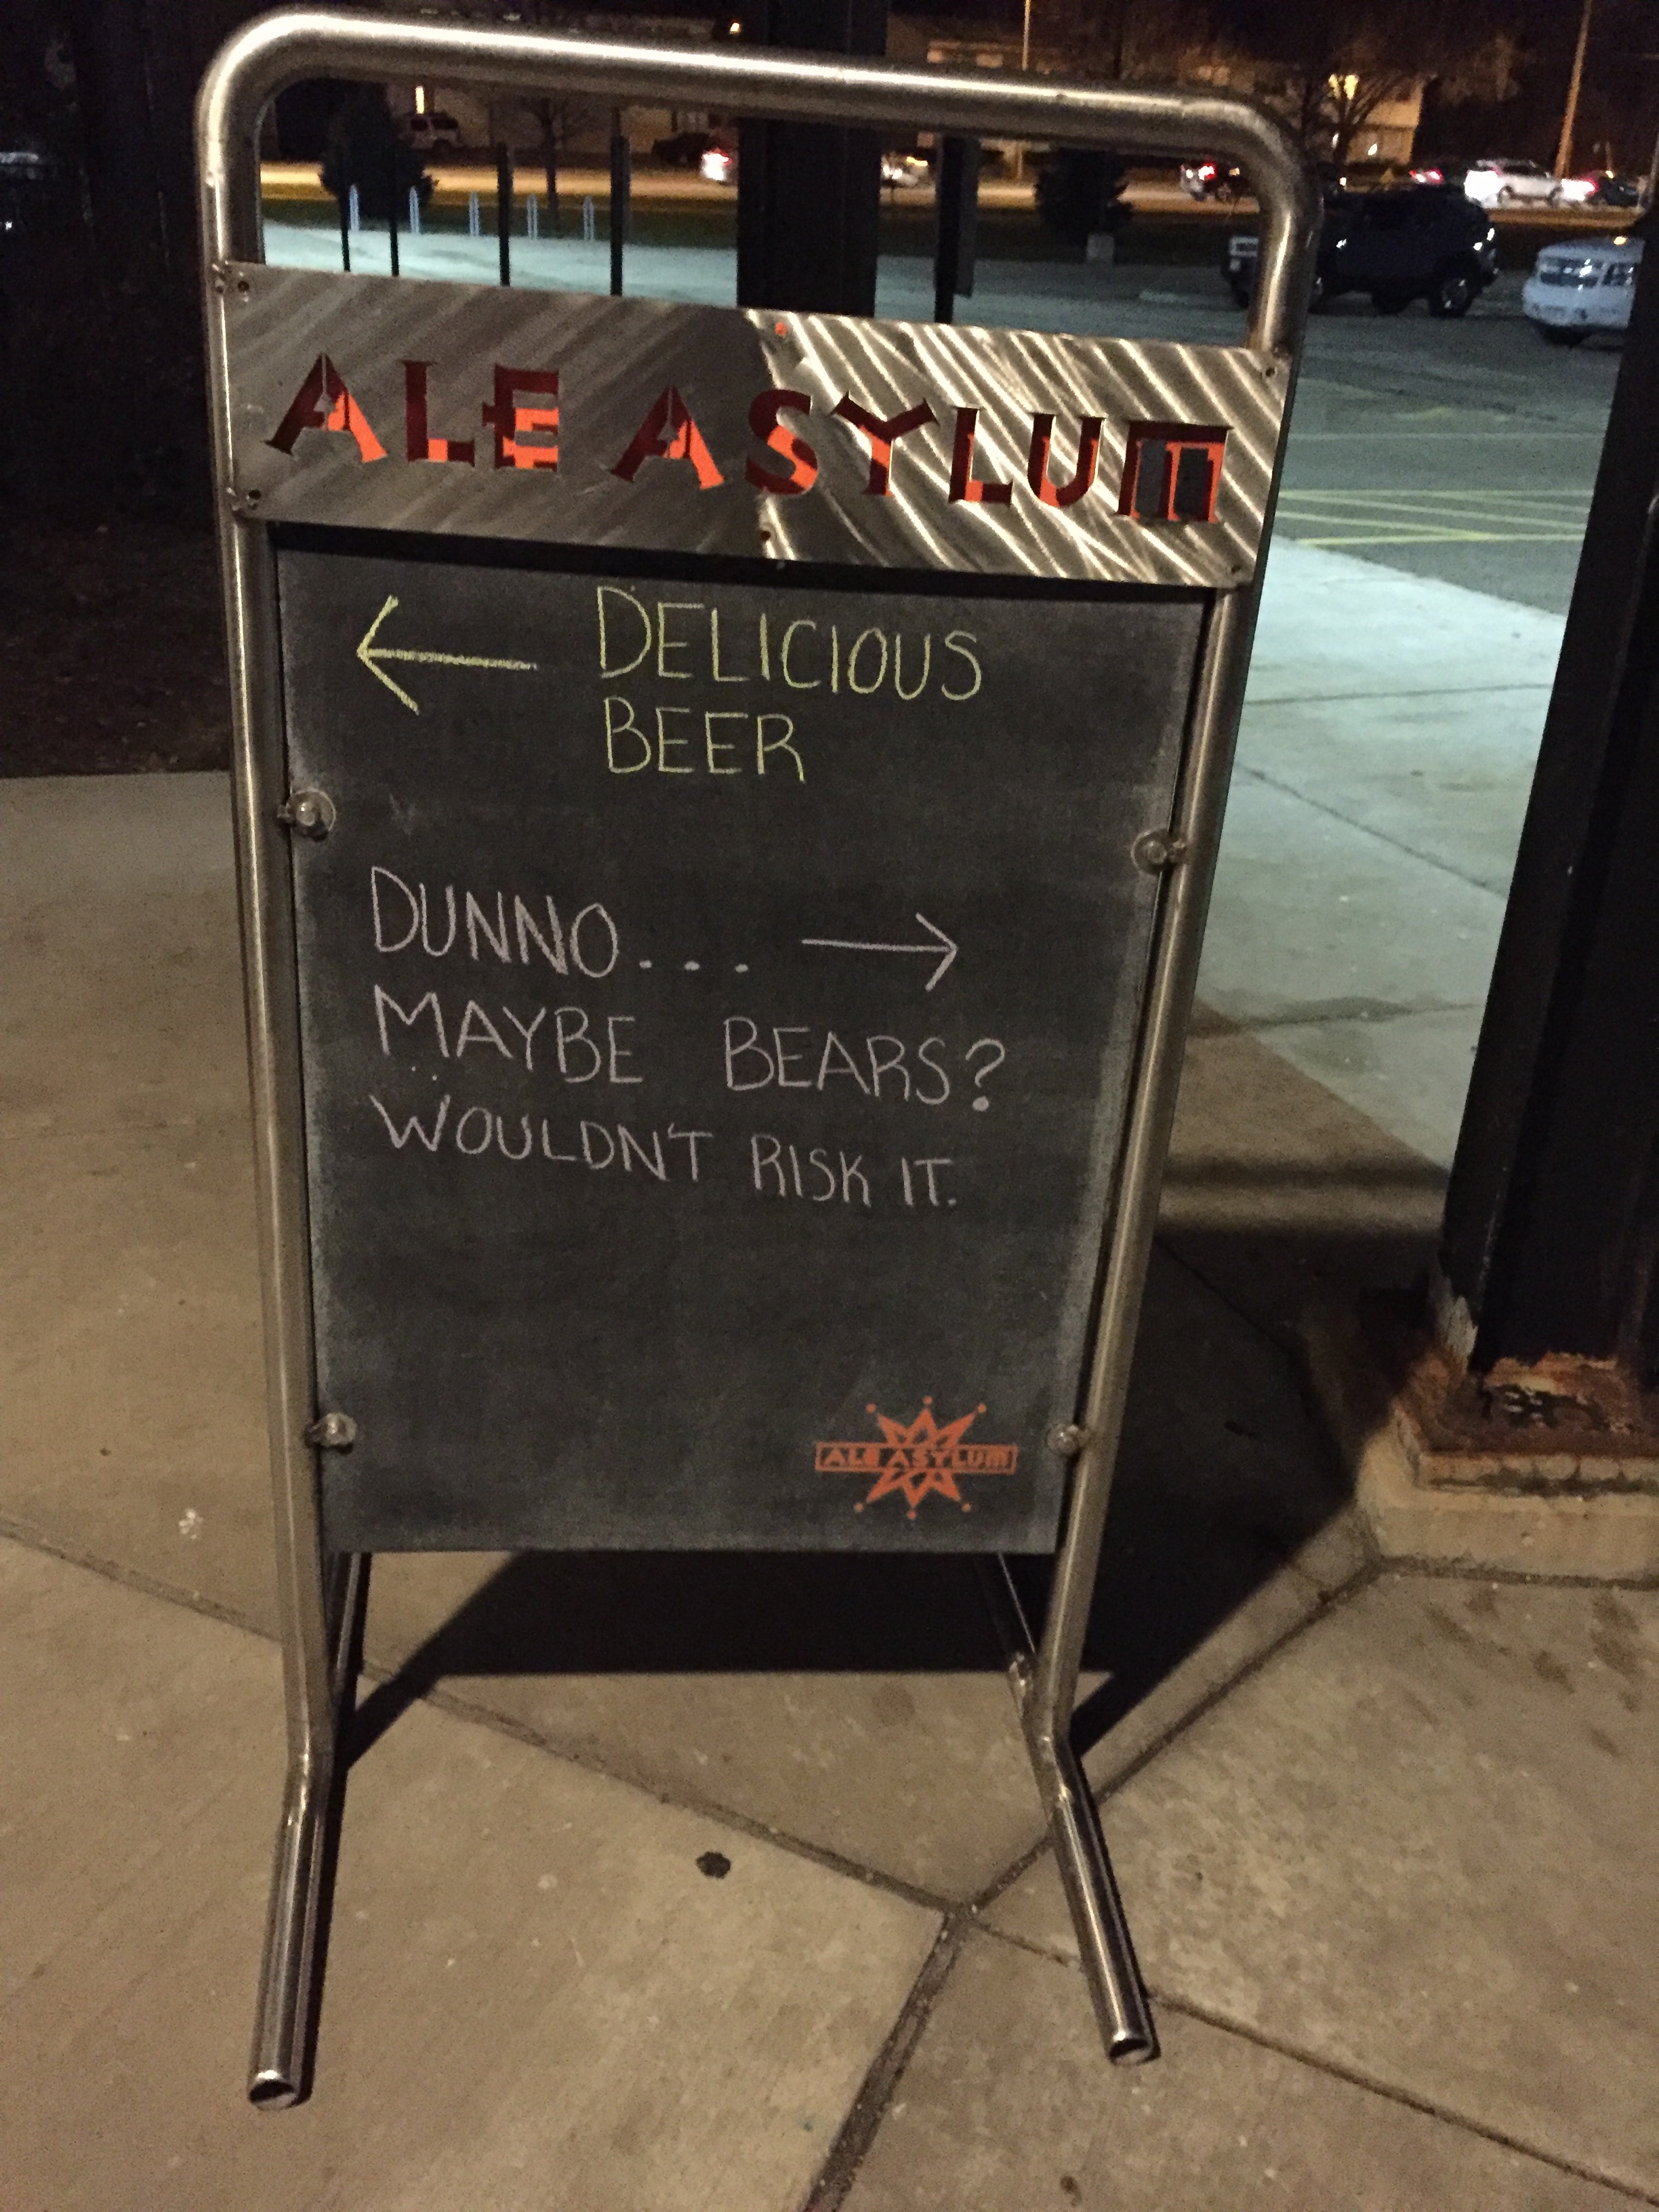 ALE ASYLUM
← DELICIOUS
BEER
DUNNO... →
MAYBE BEARS?
WOULDN'T RISK IT.
ALE ASYLUM